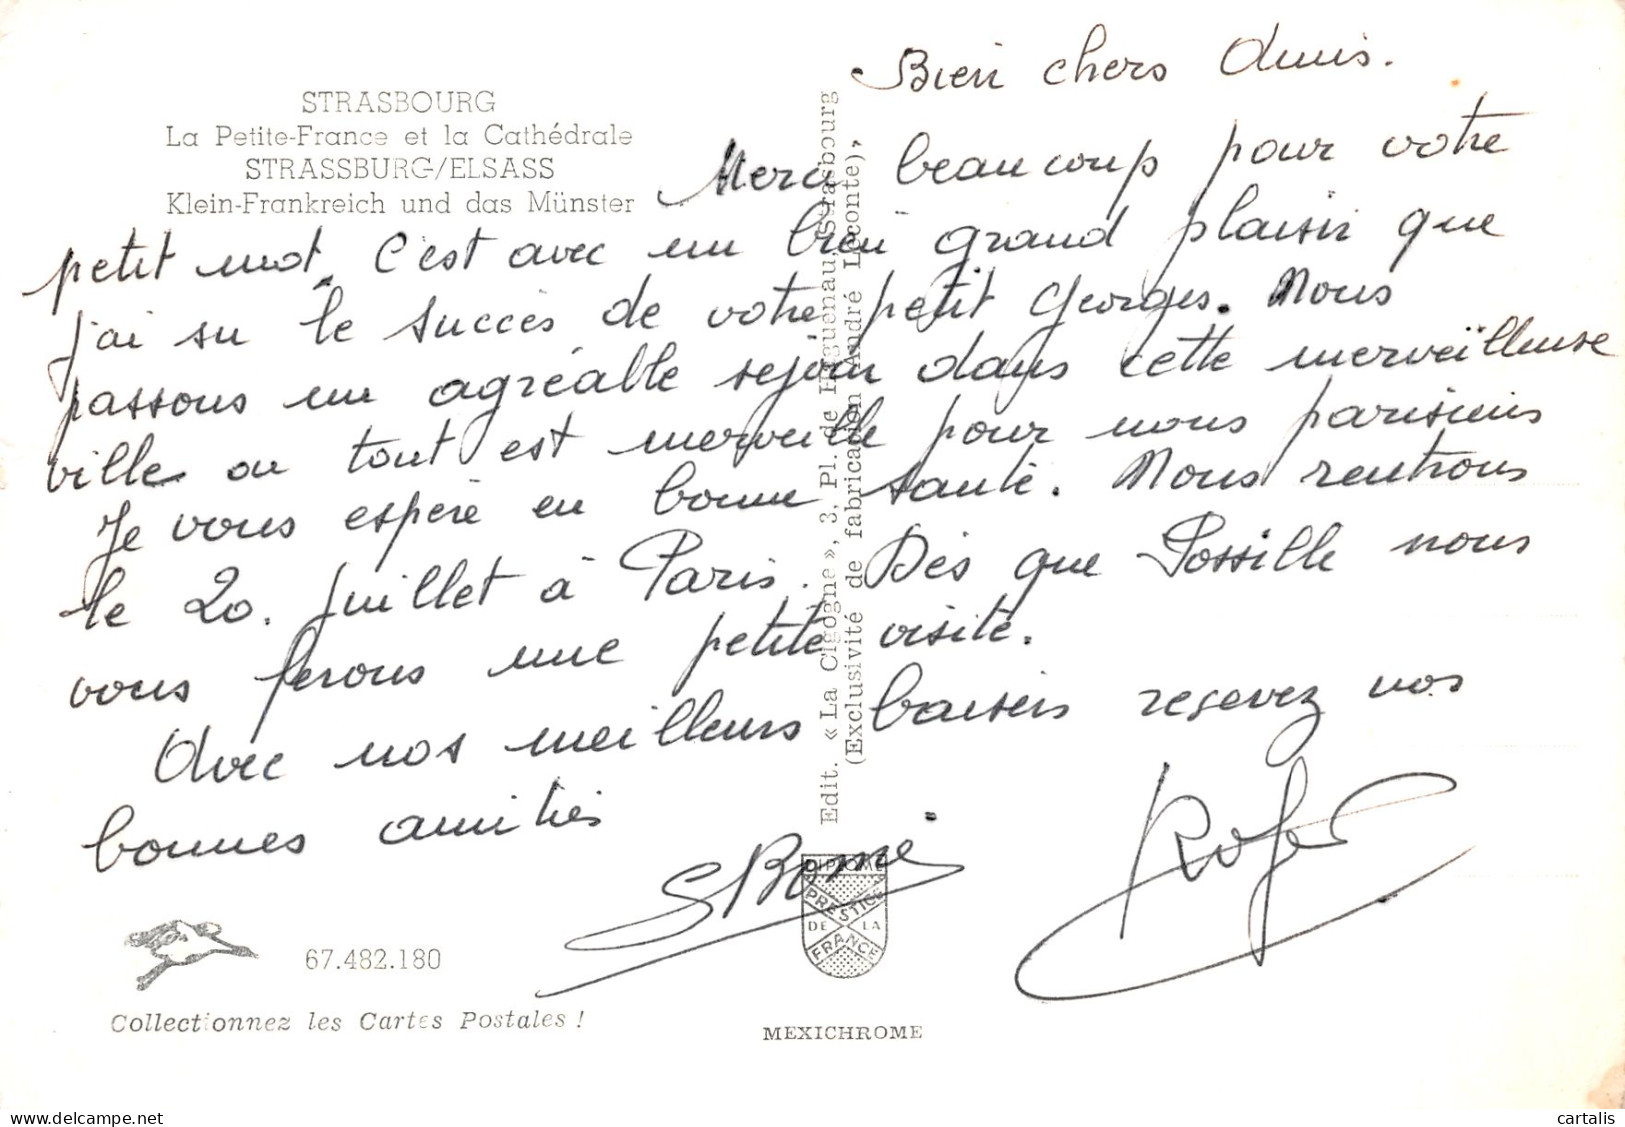 STRASBOURG
La Petite-France et la Cathédrale
STRASSBURG/ELSASS
Klein-Frankreich und das Münster
Bien chers Amis.
Merci beaucoup pour votre
petit mot, C'est avec un bien grand plaisir que
j'ai su le succès de votre petit Georges. Nous
passons un agréable sejour dans cette merveïlleuse
ville ou tout est merveille pour nous parisiens
Je vous espère en bonne santé. Nous rentrons
le 20. Juillet à Paris. Dès que Possille nous
vous ferons une petite visite.
Avec nos meilleurs baisers reçevez nos
bonnes amitiés
Roger
Edit. « La Cigogne », 3, Pl. de Haguenau, Strasbourg
(Exclusivité de fabrication André Leconte)
DIPLOME
PRESTIGE
DE LA
FRANCE
67.482.180
Collectionnez les Cartes Postales !
MEXICHROME
www.delcampe.net
cartalis